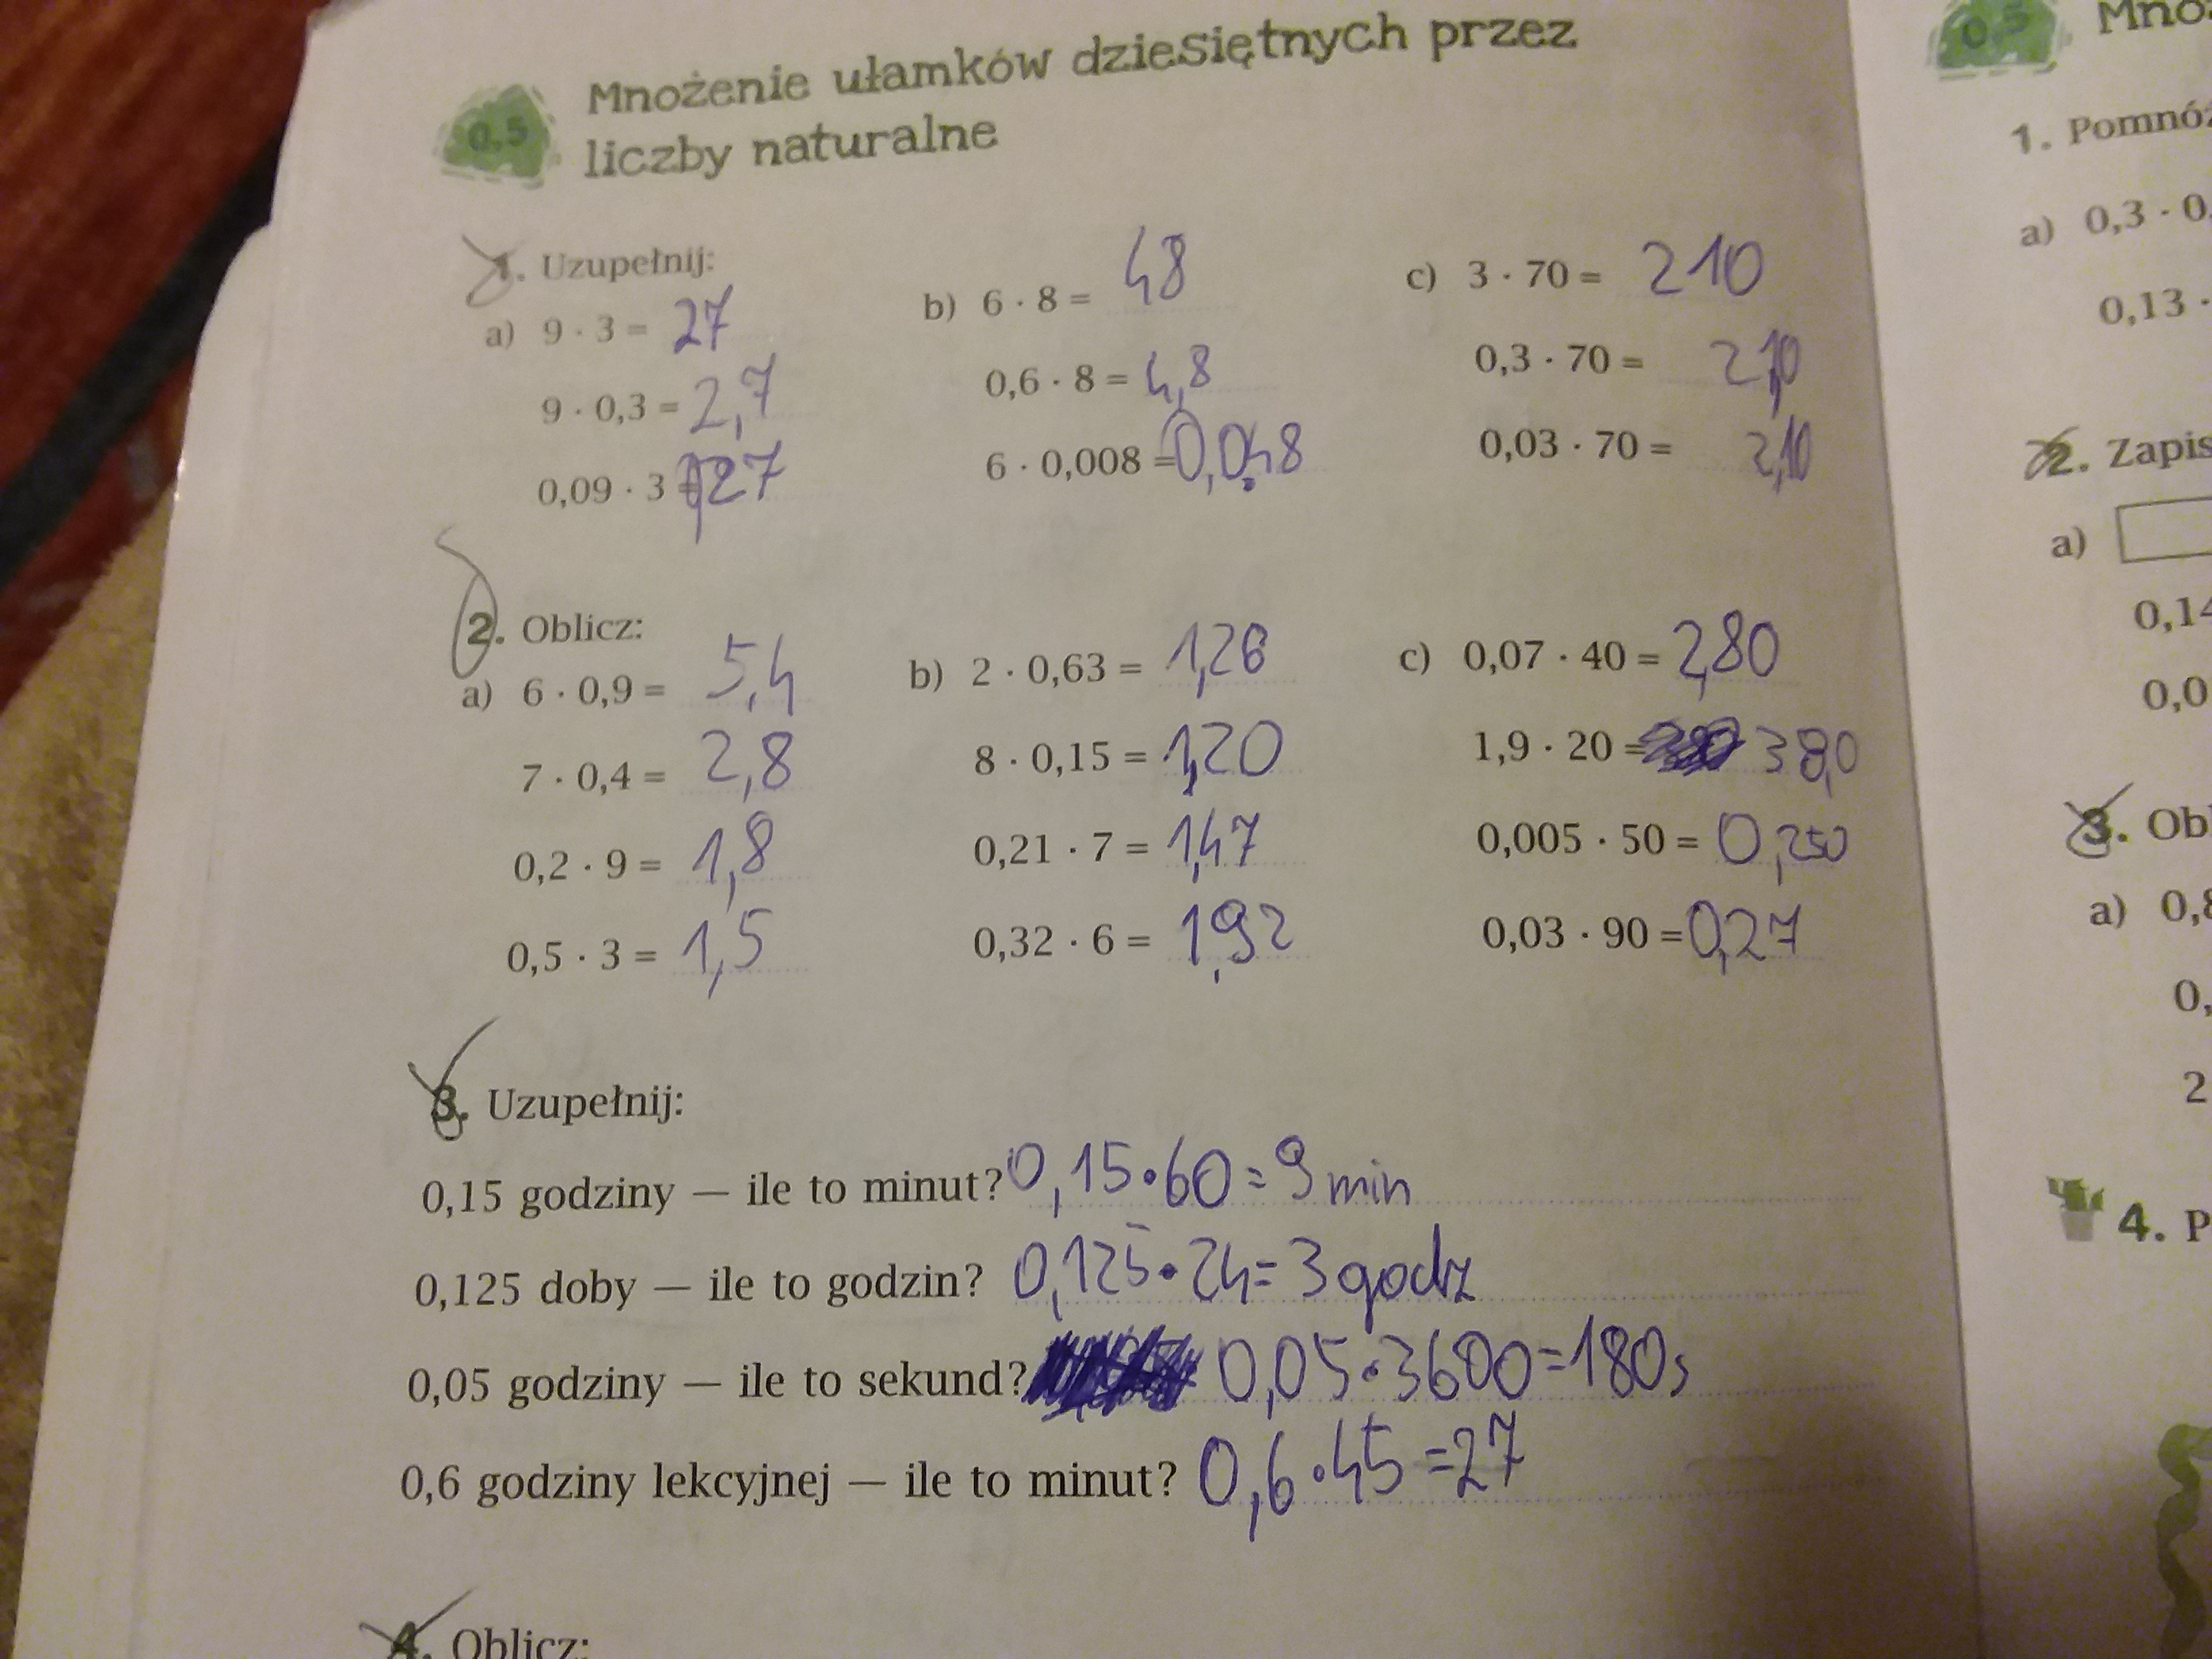 0,5 Mnożenie ułamków dziesiętnych przez
liczby naturalne
1. Uzupełnij:
a) 9 · 3 = 27
9 · 0,3 = 2,7
0,09 · 3 = 0,27
b) 6 · 8 = 48
0,6 · 8 = 4,8
6 · 0,008 = 0,048
c) 3 · 70 = 210
0,3 · 70 = 21,0
0,03 · 70 = 2,10
2. Oblicz:
a) 6 · 0,9 = 5,4
7 · 0,4 = 2,8
0,2 · 9 = 1,8
0,5 · 3 = 1,5
b) 2 · 0,63 = 1,26
8 · 0,15 = 1,20
0,21 · 7 = 1,47
0,32 · 6 = 1,92
c) 0,07 · 40 = 2,80
1,9 · 20 = 38,0
0,005 · 50 = 0,250
0,03 · 90 = 0,27
3. Uzupełnij:
0,15 godziny — ile to minut? 0,15·60=9min
0,125 doby — ile to godzin? 0,125·24=3godz
0,05 godziny — ile to sekund? 0,05·3600=180s
0,6 godziny lekcyjnej — ile to minut? 0,6·45=27
4. Oblicz:
0,5
1. Pomnóż
a) 0,3 · 0,
0,13 ·
2. Zapis
a)
0,14
0,0
3. Ob
a) 0,8
0,
2
4. P